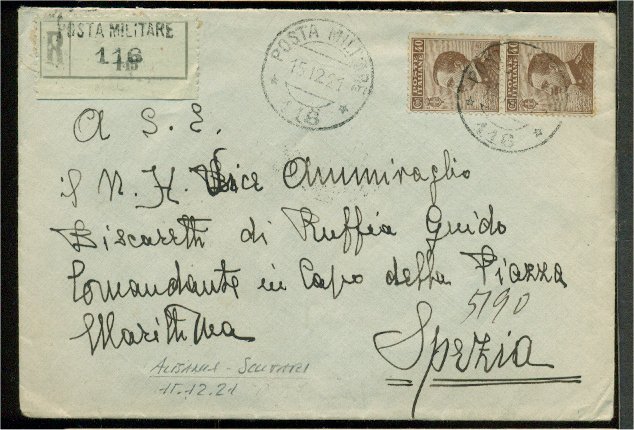 POSTA MILITARE
R 116
POSTA MILITARE
15.12.21
116
40 40
116
A S. E.
il N. H. Vice Ammiraglio
Biscaretti di Ruffia Guido
Comandante in Capo della Piazza
Marittima
5190
Spezia
ALBANIA - SCUTARI
15.12.21